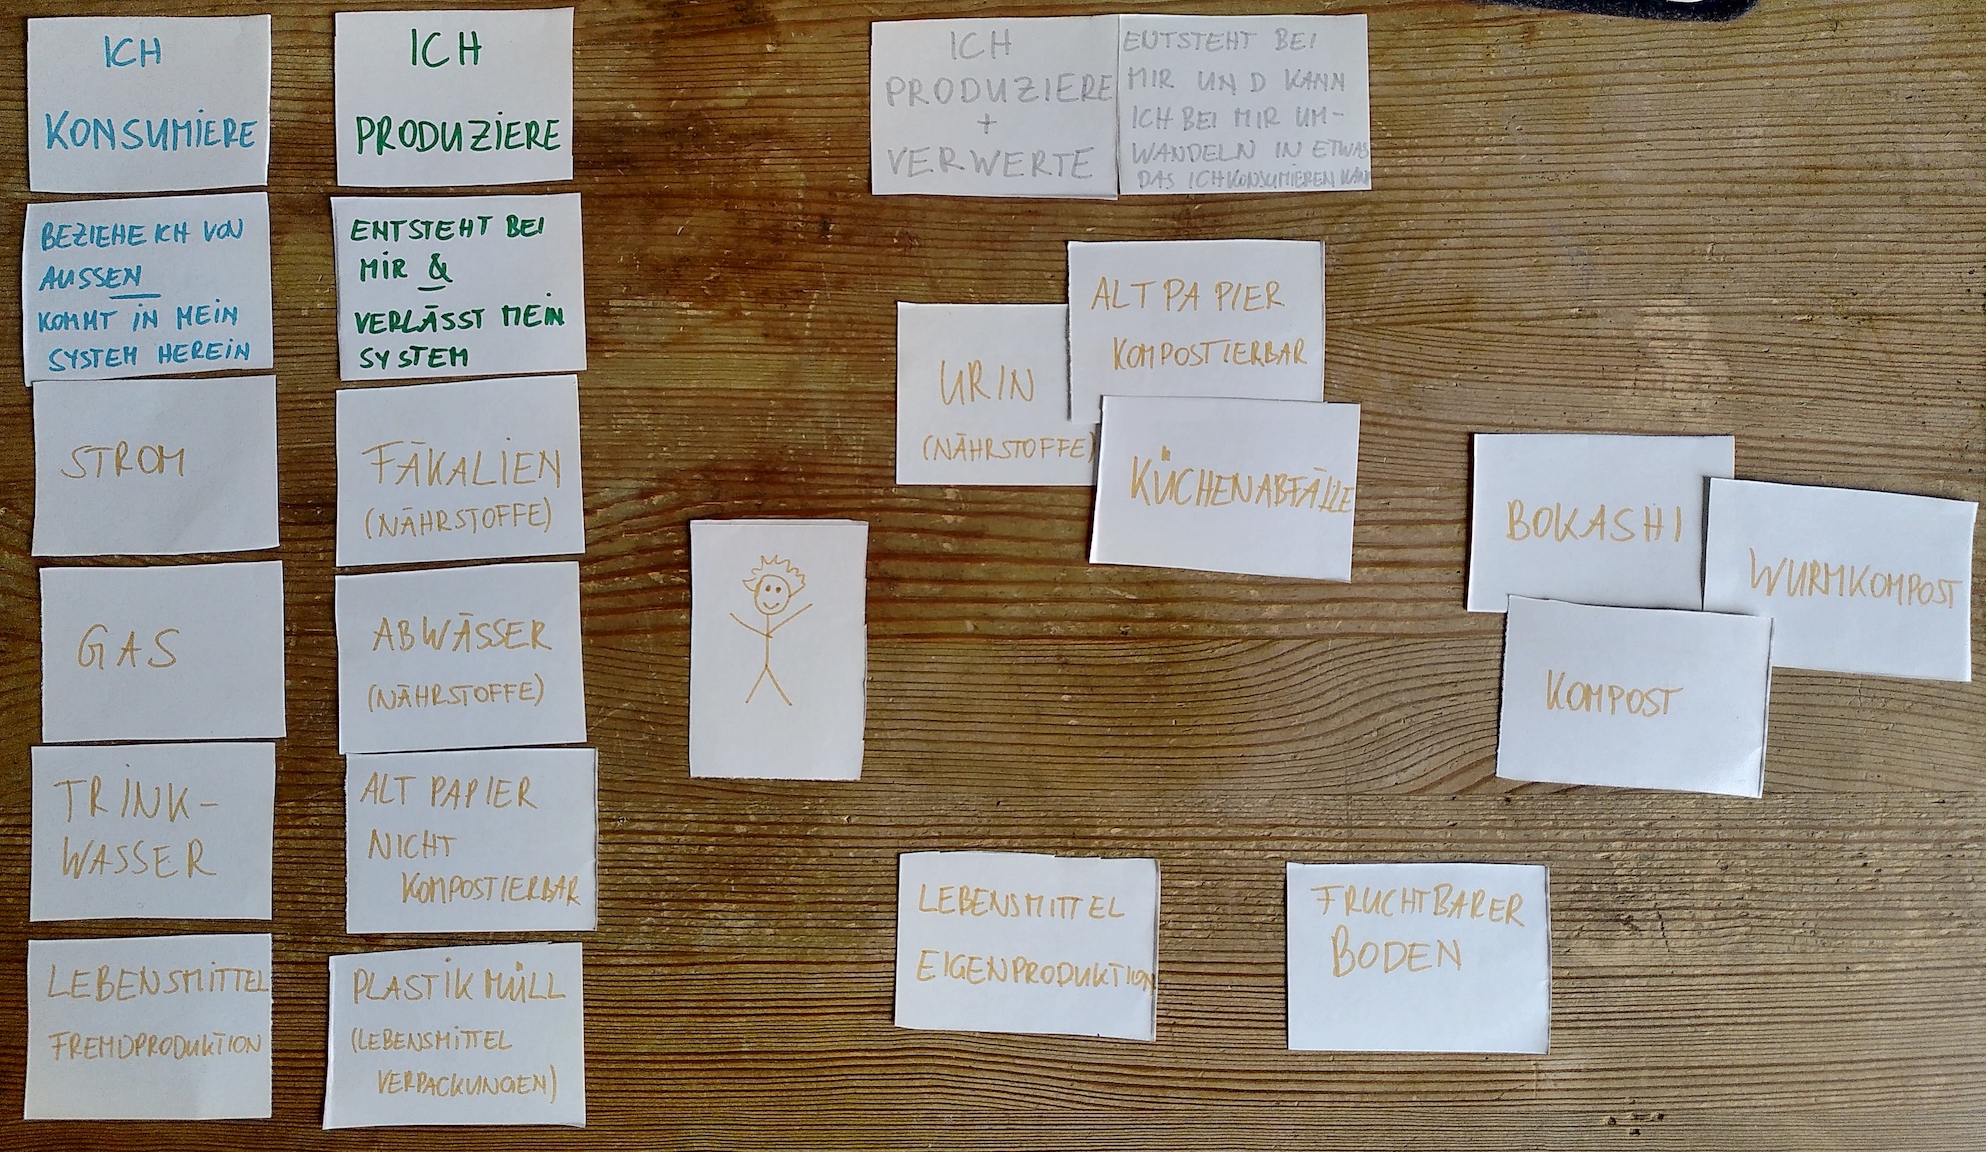 ICH
KONSUMIERE
BEZIEHE ICH VON
AUSSEN
KOMMT IN MEIN
SYSTEM HEREIN
STROM
GAS
TRINK-
WASSER
LEBENSMITTEL
FREMDPRODUKTION
ICH
PRODUZIERE
ENTSTEHT BEI
MIR &
VERLÄSST MEIN
SYSTEM
FÄKALIEN
(NÄHRSTOFFE)
ABWÄSSER
(NÄHRSTOFFE)
ALTPAPIER
NICHT
KOMPOSTIERBAR
PLASTIKMÜLL
(LEBENSMITTEL
VERPACKUNGEN)
ICH
PRODUZIERE
+
VERWERTE
ENTSTEHT BEI
MIR UND KANN
ICH BEI MIR UM-
WANDELN IN ETWAS
DAS ICH KONSUMIEREN KANN
URIN
(NÄHRSTOFFE)
ALTPAPIER
KOMPOSTIERBAR
KÜCHENABFÄLLE
BOKASHI
WURMKOMPOST
KOMPOST
LEBENSMITTEL
EIGENPRODUKTION
FRUCHTBARER
BODEN